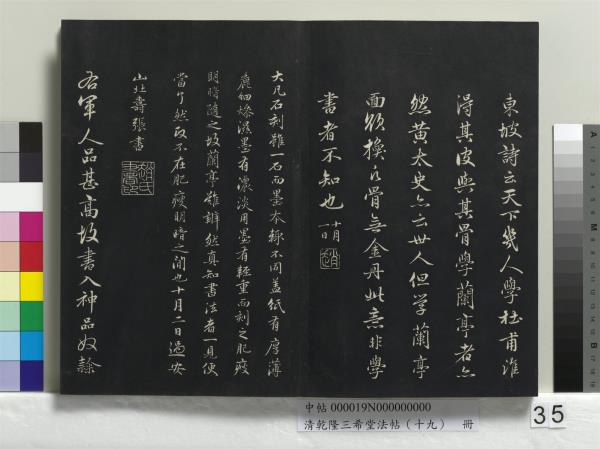 東坡詩云天下幾人學杜甫誰
得其皮與其骨學蘭亭者亦
然黃太史亦云世人但學蘭亭
面欲換凡骨無金丹此意非學
書者不知也十月
一日
大凡石刻雖一石而墨本輒不同蓋紙有厚薄
麁細燥濕墨有濃淡用墨有輕重而刻之肥瘦
明暗隨之故蘭亭難辨然真知書法者一見便
當了然政不在肥瘦明暗之間也十月二日過安
山北壽張書
趙氏
書印
右軍人品甚高故書入神品奴隸
中帖 000019N000000000
清乾隆三希堂法帖（十九） 冊
35